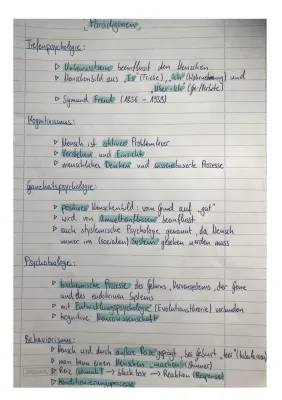 Paradigmen
Tiefenpsychologie:
▷ Unbewusstsein beeinflusst den Menschen
▷ Menschenbild aus „Es" (Triebe), „Ich" (Wahrnehmung) und
„Über-Ich" (Ge-/Verbote)
▷ Sigmund Freud (1856 - 1939)
Kognitivismus:
▷ Mensch ist aktiver Problemlöser
▷ Verstehen und Einsicht
▷ menschliches Denken und Prozesse
Ganzheitspsychologie:
▷ positives Menschenbild: vom Grund auf „gut"
▷ wird von Umwelteinflüssen beeinflusst
▷ auch systemische Psychologie genannt, da Mensch
immer im (sozialen) System gesehen werden muss
Psychobiologie:
▷ biochemische Prozesse des Gehirns, Nervensystems, der Gene
und des endokrinen Systems
▷ mit Entwicklungspsychologie (Evolutionstheorie) verbunden
▷ kognitive Neurowissenschaft
Behaviorismus:
▷ Mensch wird durch äußere Reize geprägt, bei Geburt „leer"
▷ man kann einen Menschen „machen"
▷ Reiz → black box → Reaktion (Response)
▷ Konditionierungsprozesse